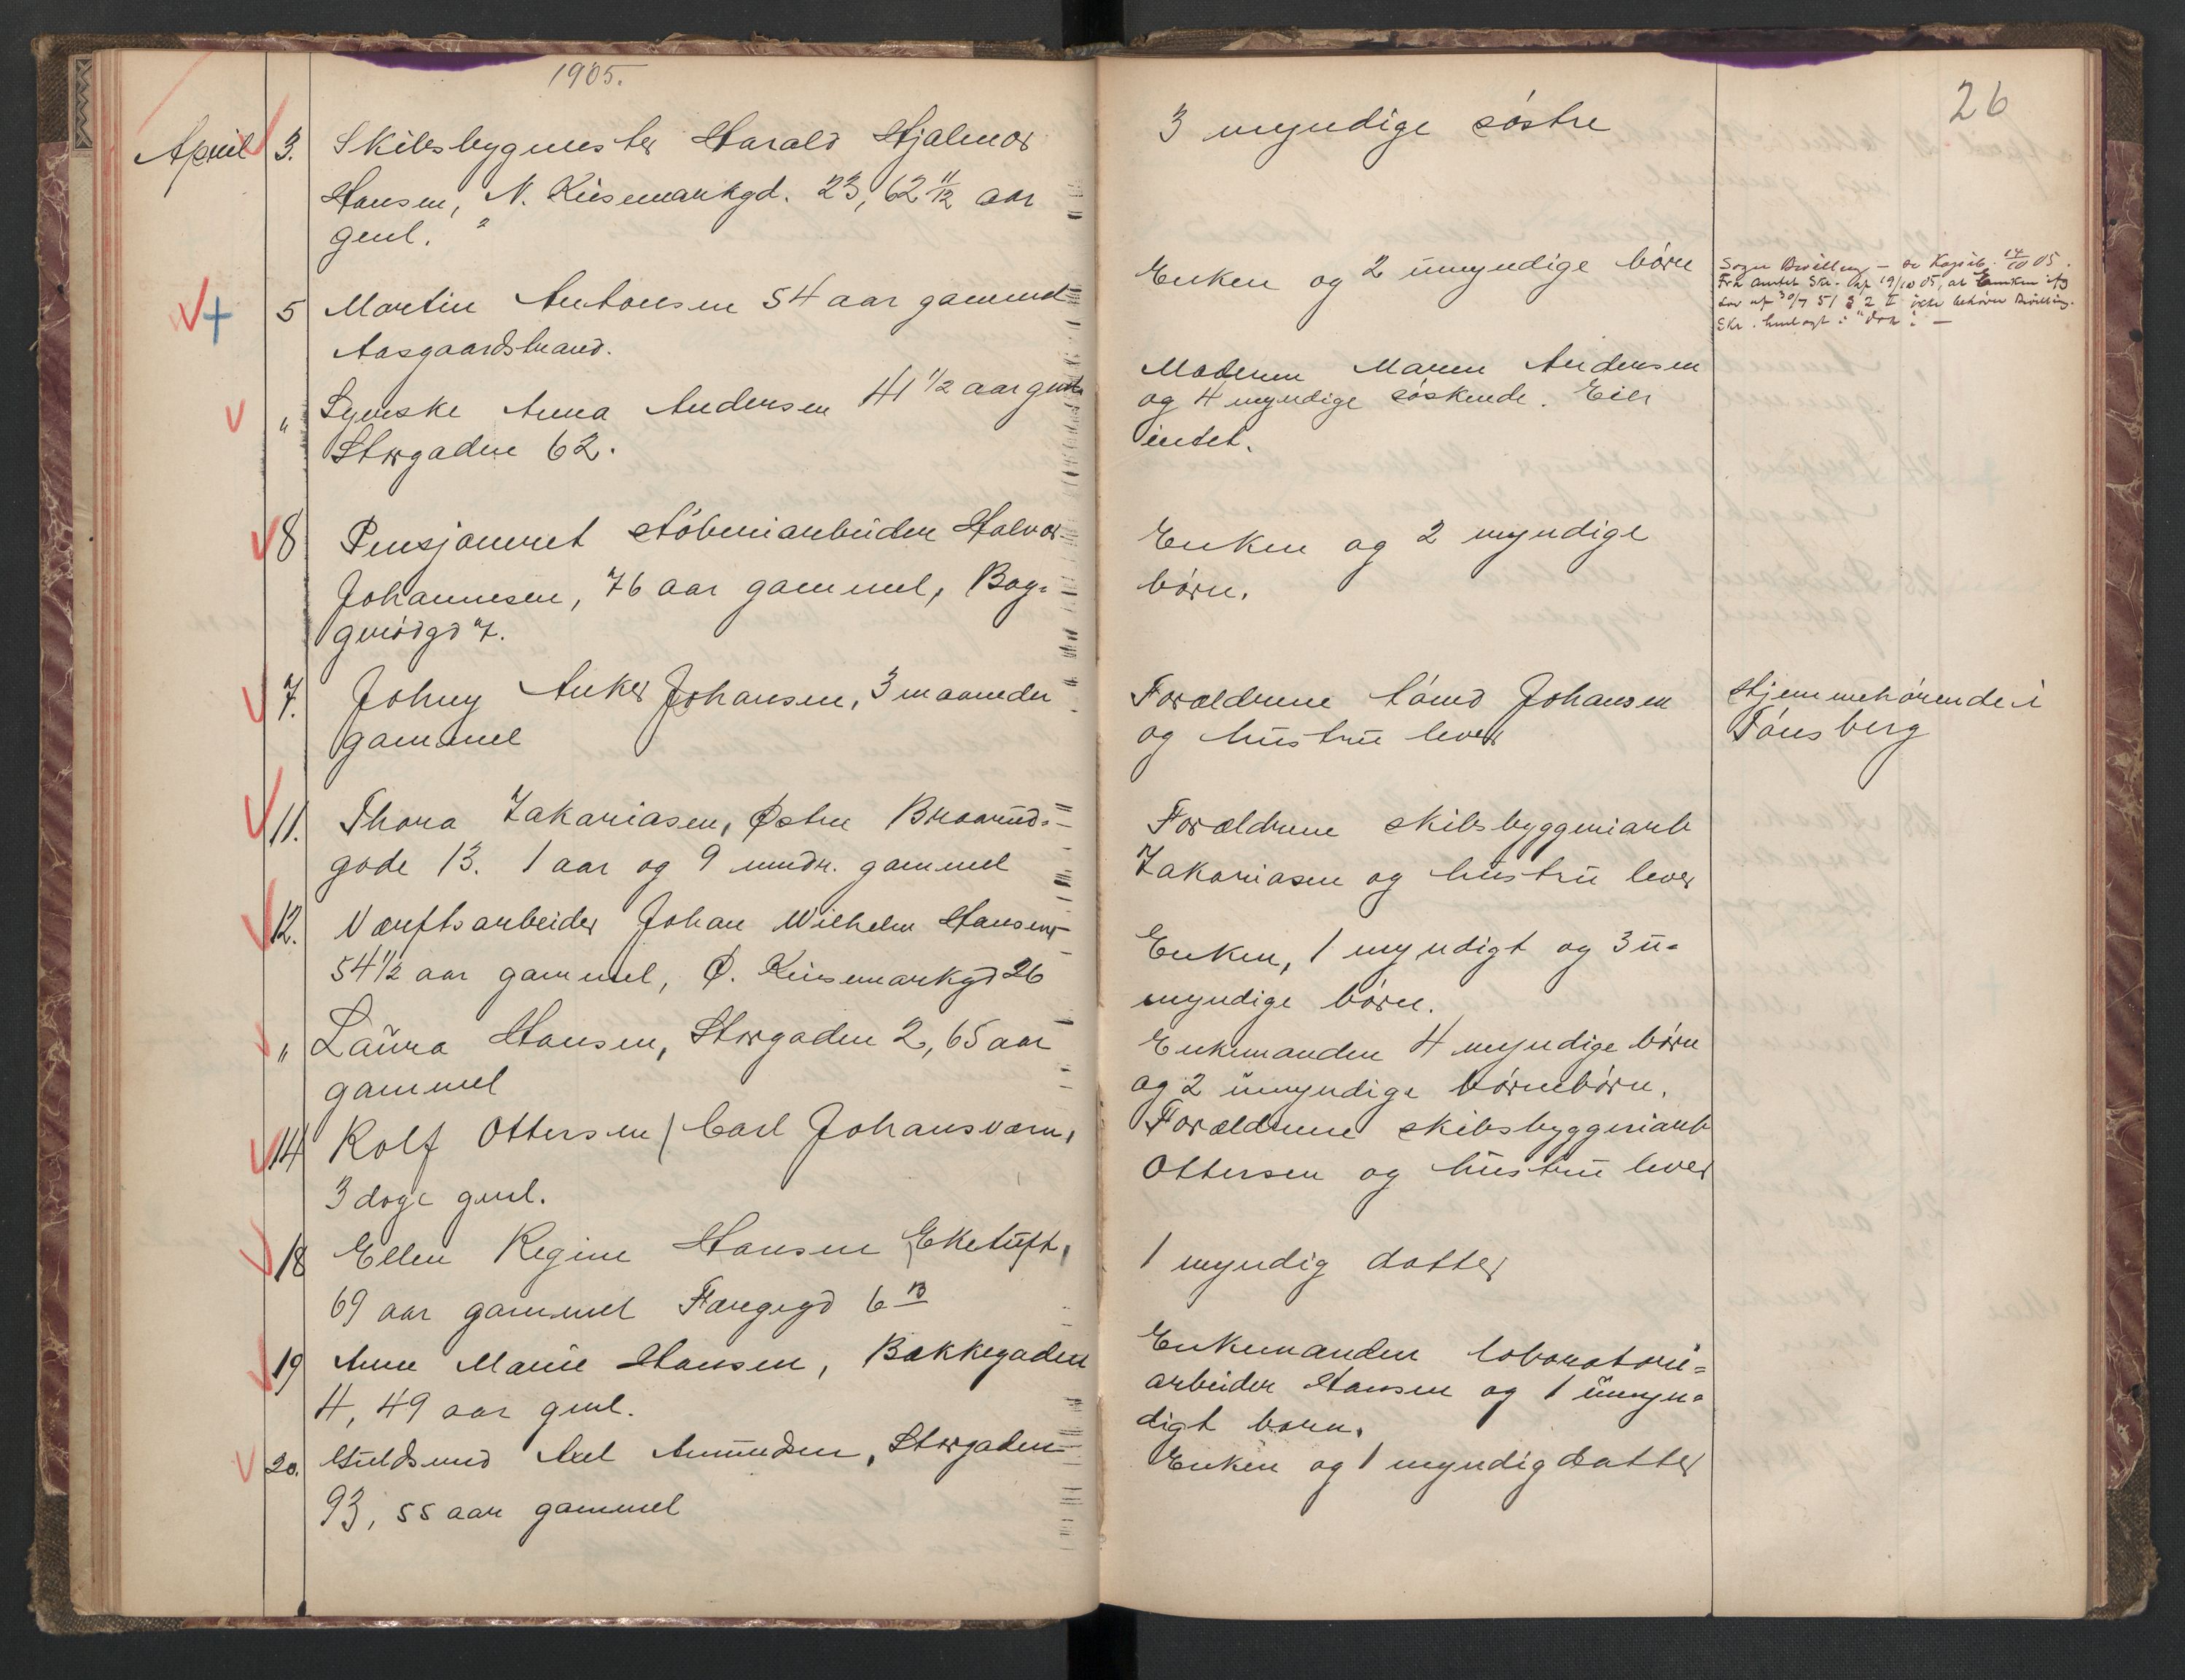 1905.
April 3. Skibsbygmester Harald Hjalmar
Hansen, N. Kirsemarkgd. 23, 62 11/12 aar
gml.
5 Martin Antonsen 54 aar gammel
Aasgaardstrand.
" Syerske Anna Andersen 41 1/2 aar gml
Storgaden 62.
8 Pensjoneret støberiarbeider Halvor
Johannesen, 76 aar gammel, Bag-
grødgd 7.
7. Johny Anker Johansen, 3 maaneder
gammel
11. Thora Zakariasen, Østre Braarud-
gade 13. 1 aar og 9 mndr. gammel
12. Værftsarbeider Johan Wilhelm Hansen
54 1/2 aar gammel, Ø. Kirsemarkgd 26
" Laura Hansen, Storgaden 2, 65 aar
gammel
14 Rolf Ottersen / Carl Johansværn,
3 dage gml.
18 Ellen Regine Hansen Eketuft,
69 aar gammel Fangegd 6 B
19 Anne Marie Hansen, Bakkegaden
4, 49 aar gml.
20. Guldsmed Axel Amundsen, Storgaden
93, 55 aar gammel
26
3 myndige søstre
Enken og 2 umyndige børn
Moderen Maren Andersen
og 4 myndige søskende. Eier
intet.
Enken og 2 myndige
børn.
Forældrene tømd Johansen
og hustru lever
Forældrene skibsbyggeriarb
Zakariasen og hustru lever
Enken, 1 myndigt og 3 u-
myndige børn.
Enkemanden 4 myndige børn
og 2 umyndige børnebørn.
Forældrene skibsbyggeriarb
Ottersen og hustru lever
1 myndig datter
Enkemanden laboratorie=
arbeider Hansen og 1 umyn-
digt barn.
Enken og 1 myndig datter
Bevilling 05.
Fra amtet Skr. 19/10 05, at Enken
lov af 30/7 51 § 2 ikke behøver Bevilling.
Skr. henlagt i
Hjemmehørende i
Tønsberg